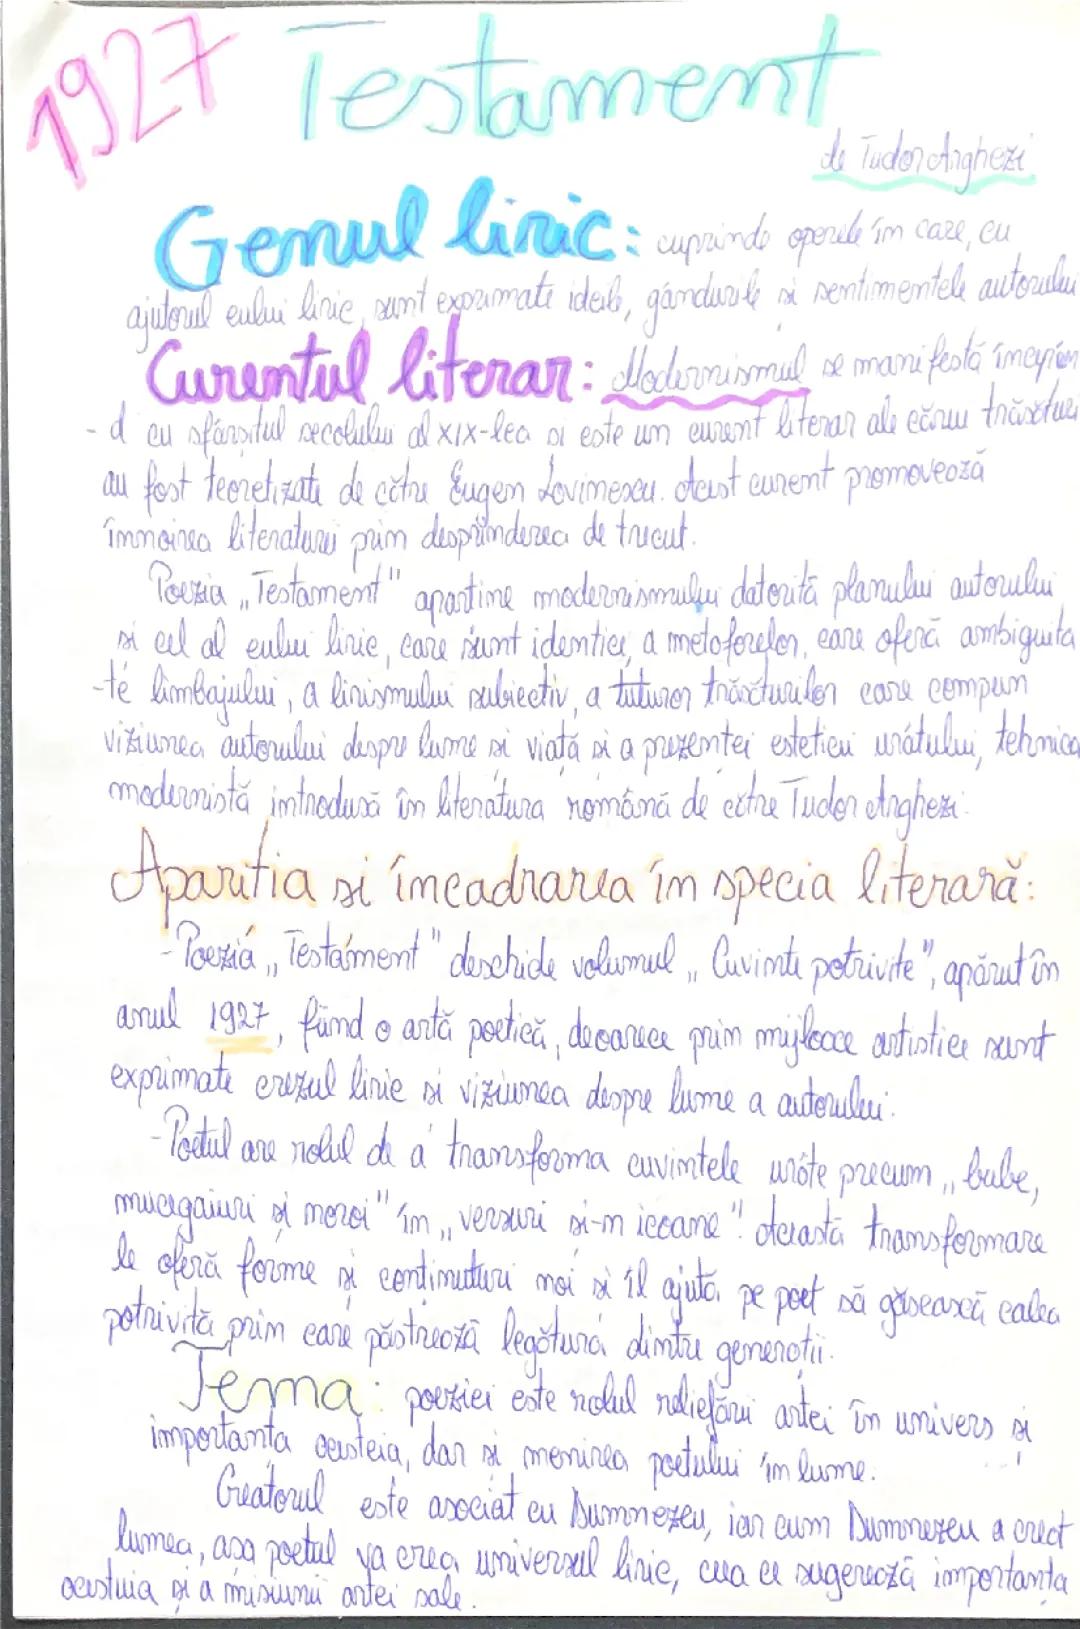 1927 Testament
de Tudor Arghezi
Genul liric: cuprinde operele în care, cu
ajutorul eului liric, sunt exprimate ideile, gândurile si sentimentele autorului
Curentul literar: Modernismul se manifestă încapân
-d cu sfârsitul secolului al XIX-lea si este un curent literar ale cărui trăsături
au fost teoretizate de către Eugen Lovinescu. Acest curent promovează
înnoirea literaturii prin desprinderea de trecut.
Poezia „Testament" apartine modernismului datorită planului autorului
si cel al eului liric, care sunt identice, a metaforelor, care oferă ambiguita
-te limbajului, a lirismului subiectiv, a tuturor trăsăturilor care compun
viziunea autorului despre lume si viată si a prezentei esteticii urâtului, tehnica
modernistă introdusă în literatura română de către Tudor Arghezi.
Aparitia si încadrarea în specia literară:
- Poezia „Testament" deschide volumul „Cuvinte potrivite", apărut în
anul 1927, fiind o artă poetică, deoarece prin mijloace artistice sunt
exprimate crezul liric si viziunea despre lume a autorului.
- Poetul are rolul de a transforma cuvintele urâte precum „bube,
mucegaiuri și noroi" în „versuri si-n icoane". Această transformare
le oferă forme și continuturi noi si îl ajută pe poet să găsească calea
potrivită prin care păstrează legătura dintre generatii.
Tema: poeziei este rolul reliefării artei în univers si
importanța acesteia, dar si menirea poetului în lume.
Creatorul este asociat cu Dumnezeu, iar cum Dumnezeu a creat
lumea, asa poetul va crea universul liric, ceea ce sugerează importanta
acestuia și a misiunii artei sale.